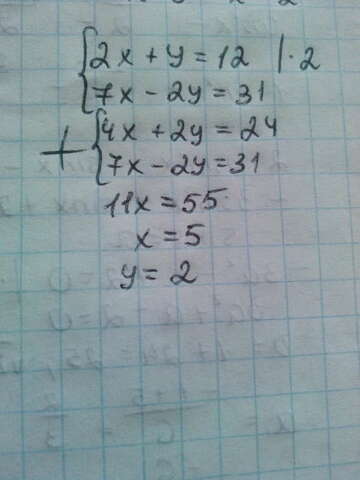 {2x + y = 12 | · 2
{7x - 2y = 31
+ {4x + 2y = 24
{7x - 2y = 31
11x = 55
x = 5
y = 2